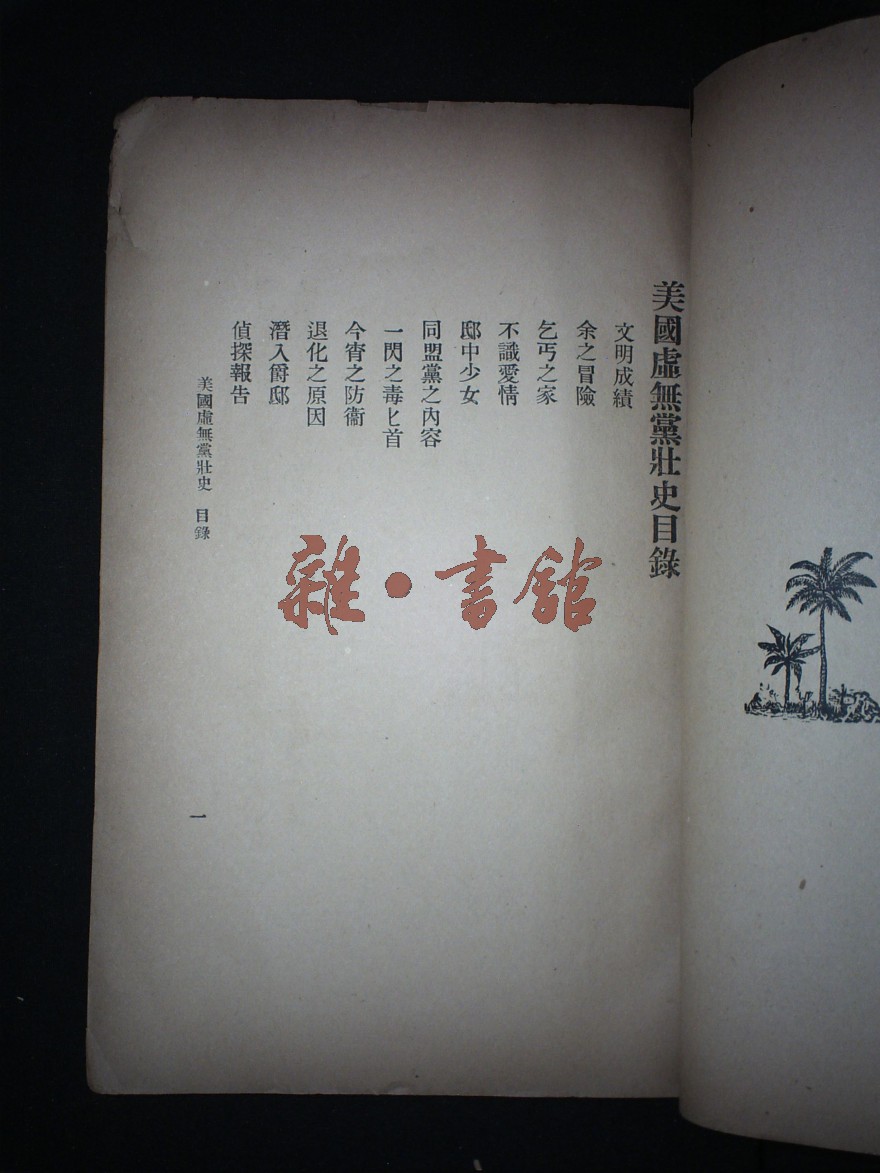 美國虛無黨壯史目錄
文明成績
余之冒險
乞丐之家
不識愛情
邸中少女
同盟黨之內容
一閃之毒匕首
今宵之防衞
退化之原因
潛入爵邸
偵探報告
美國虛無黨壯史 目錄
一
雜·書館